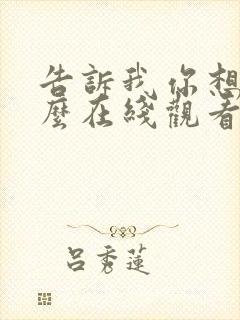 告訴我 你想
麼在綫觀看
呂秀蓮